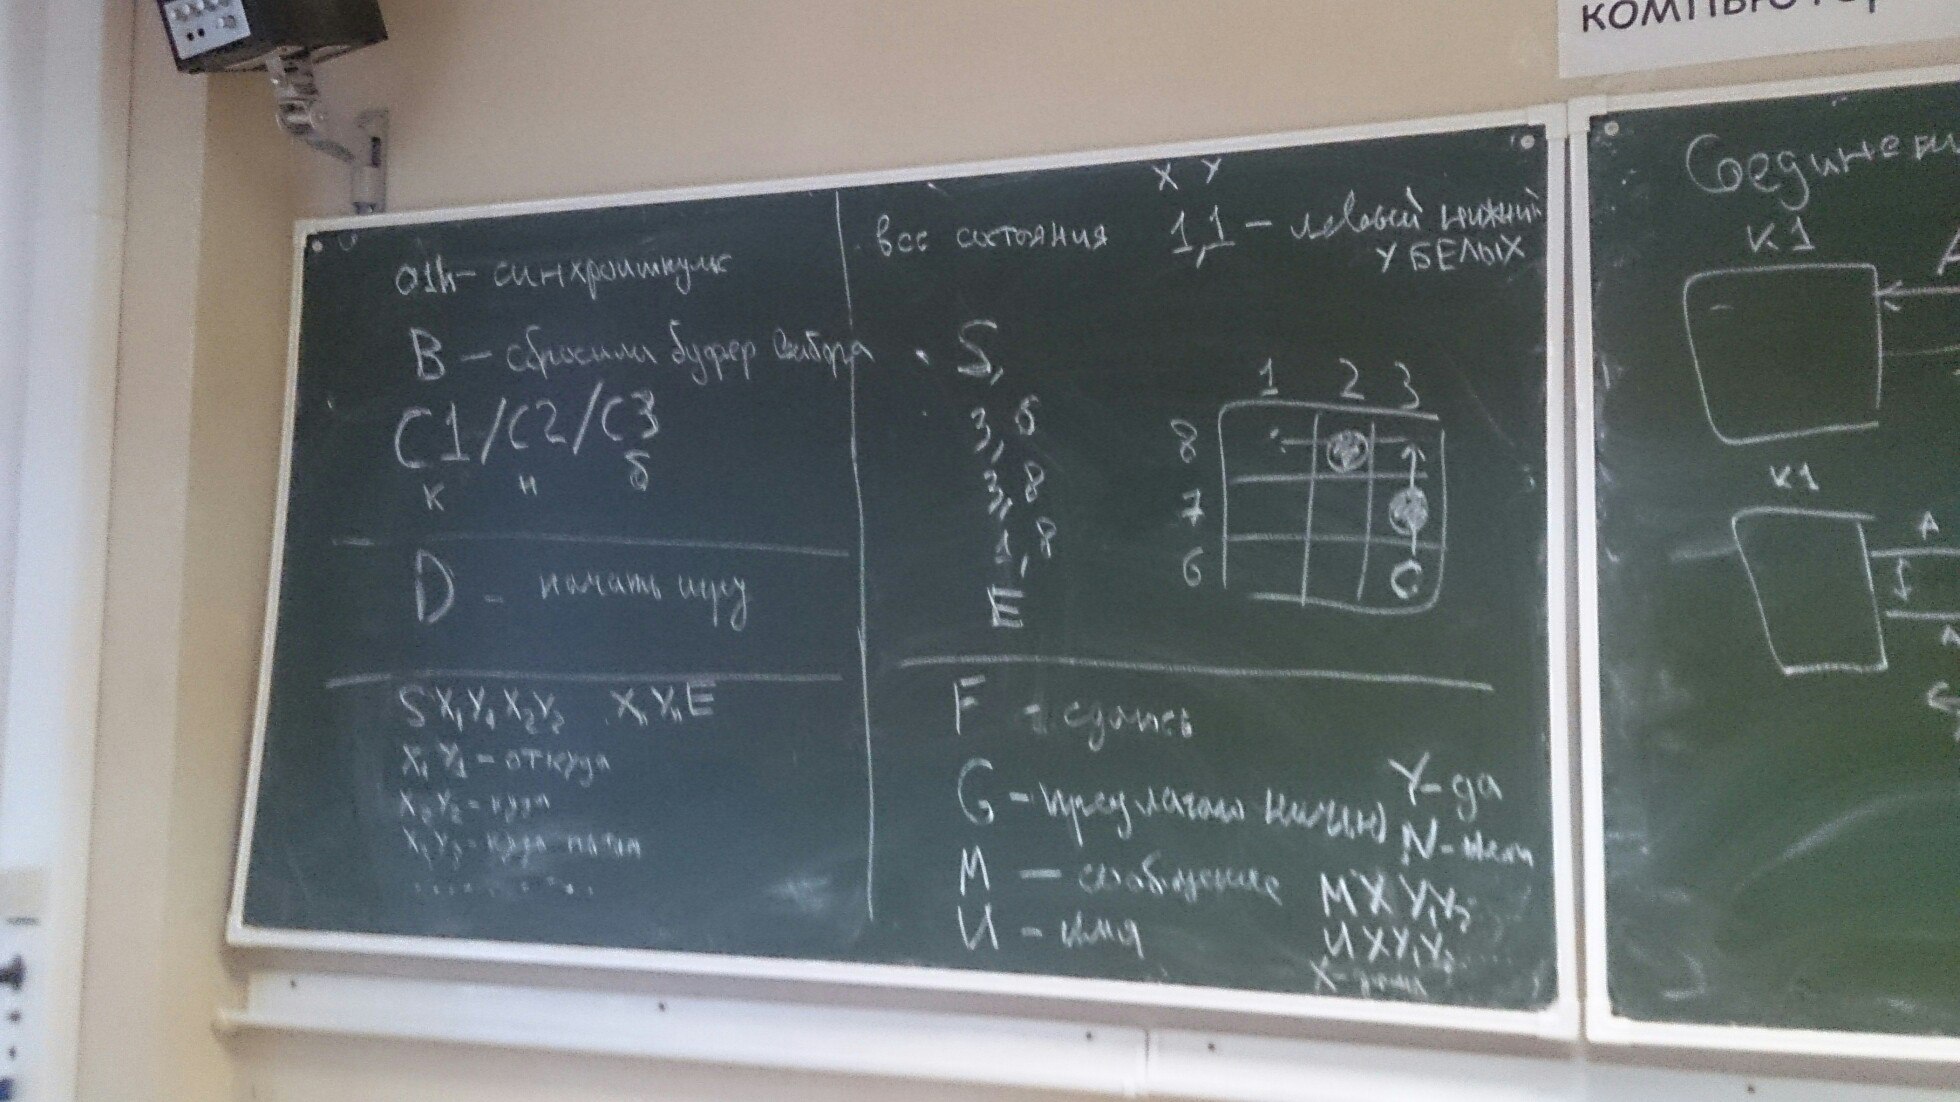 КОМПЬЮТЕР
01h - синхроимпульс
B - сбросили буфер выбора
C1/C2/C3
К Н б
D - начать игру
S X₁Y₁X₂Y₂ XₙYₙE
X₁Y₁ = откуда
X₂Y₂ = куда
X₃Y₃ = куда потом
..........
все состояния
X Y
1,1 - левый нижний
У БЕЛЫХ
S,
3,6
3,8
1,8
E
1 2 3
8
7
6
F - сдаюсь
G - предлагаю ничью
Y - да
N - нет
M - сообщение
M X Y₁Y₂
И - имя
И X Y₁Y₂
X -
Соединени
К1
A
К1
A
A